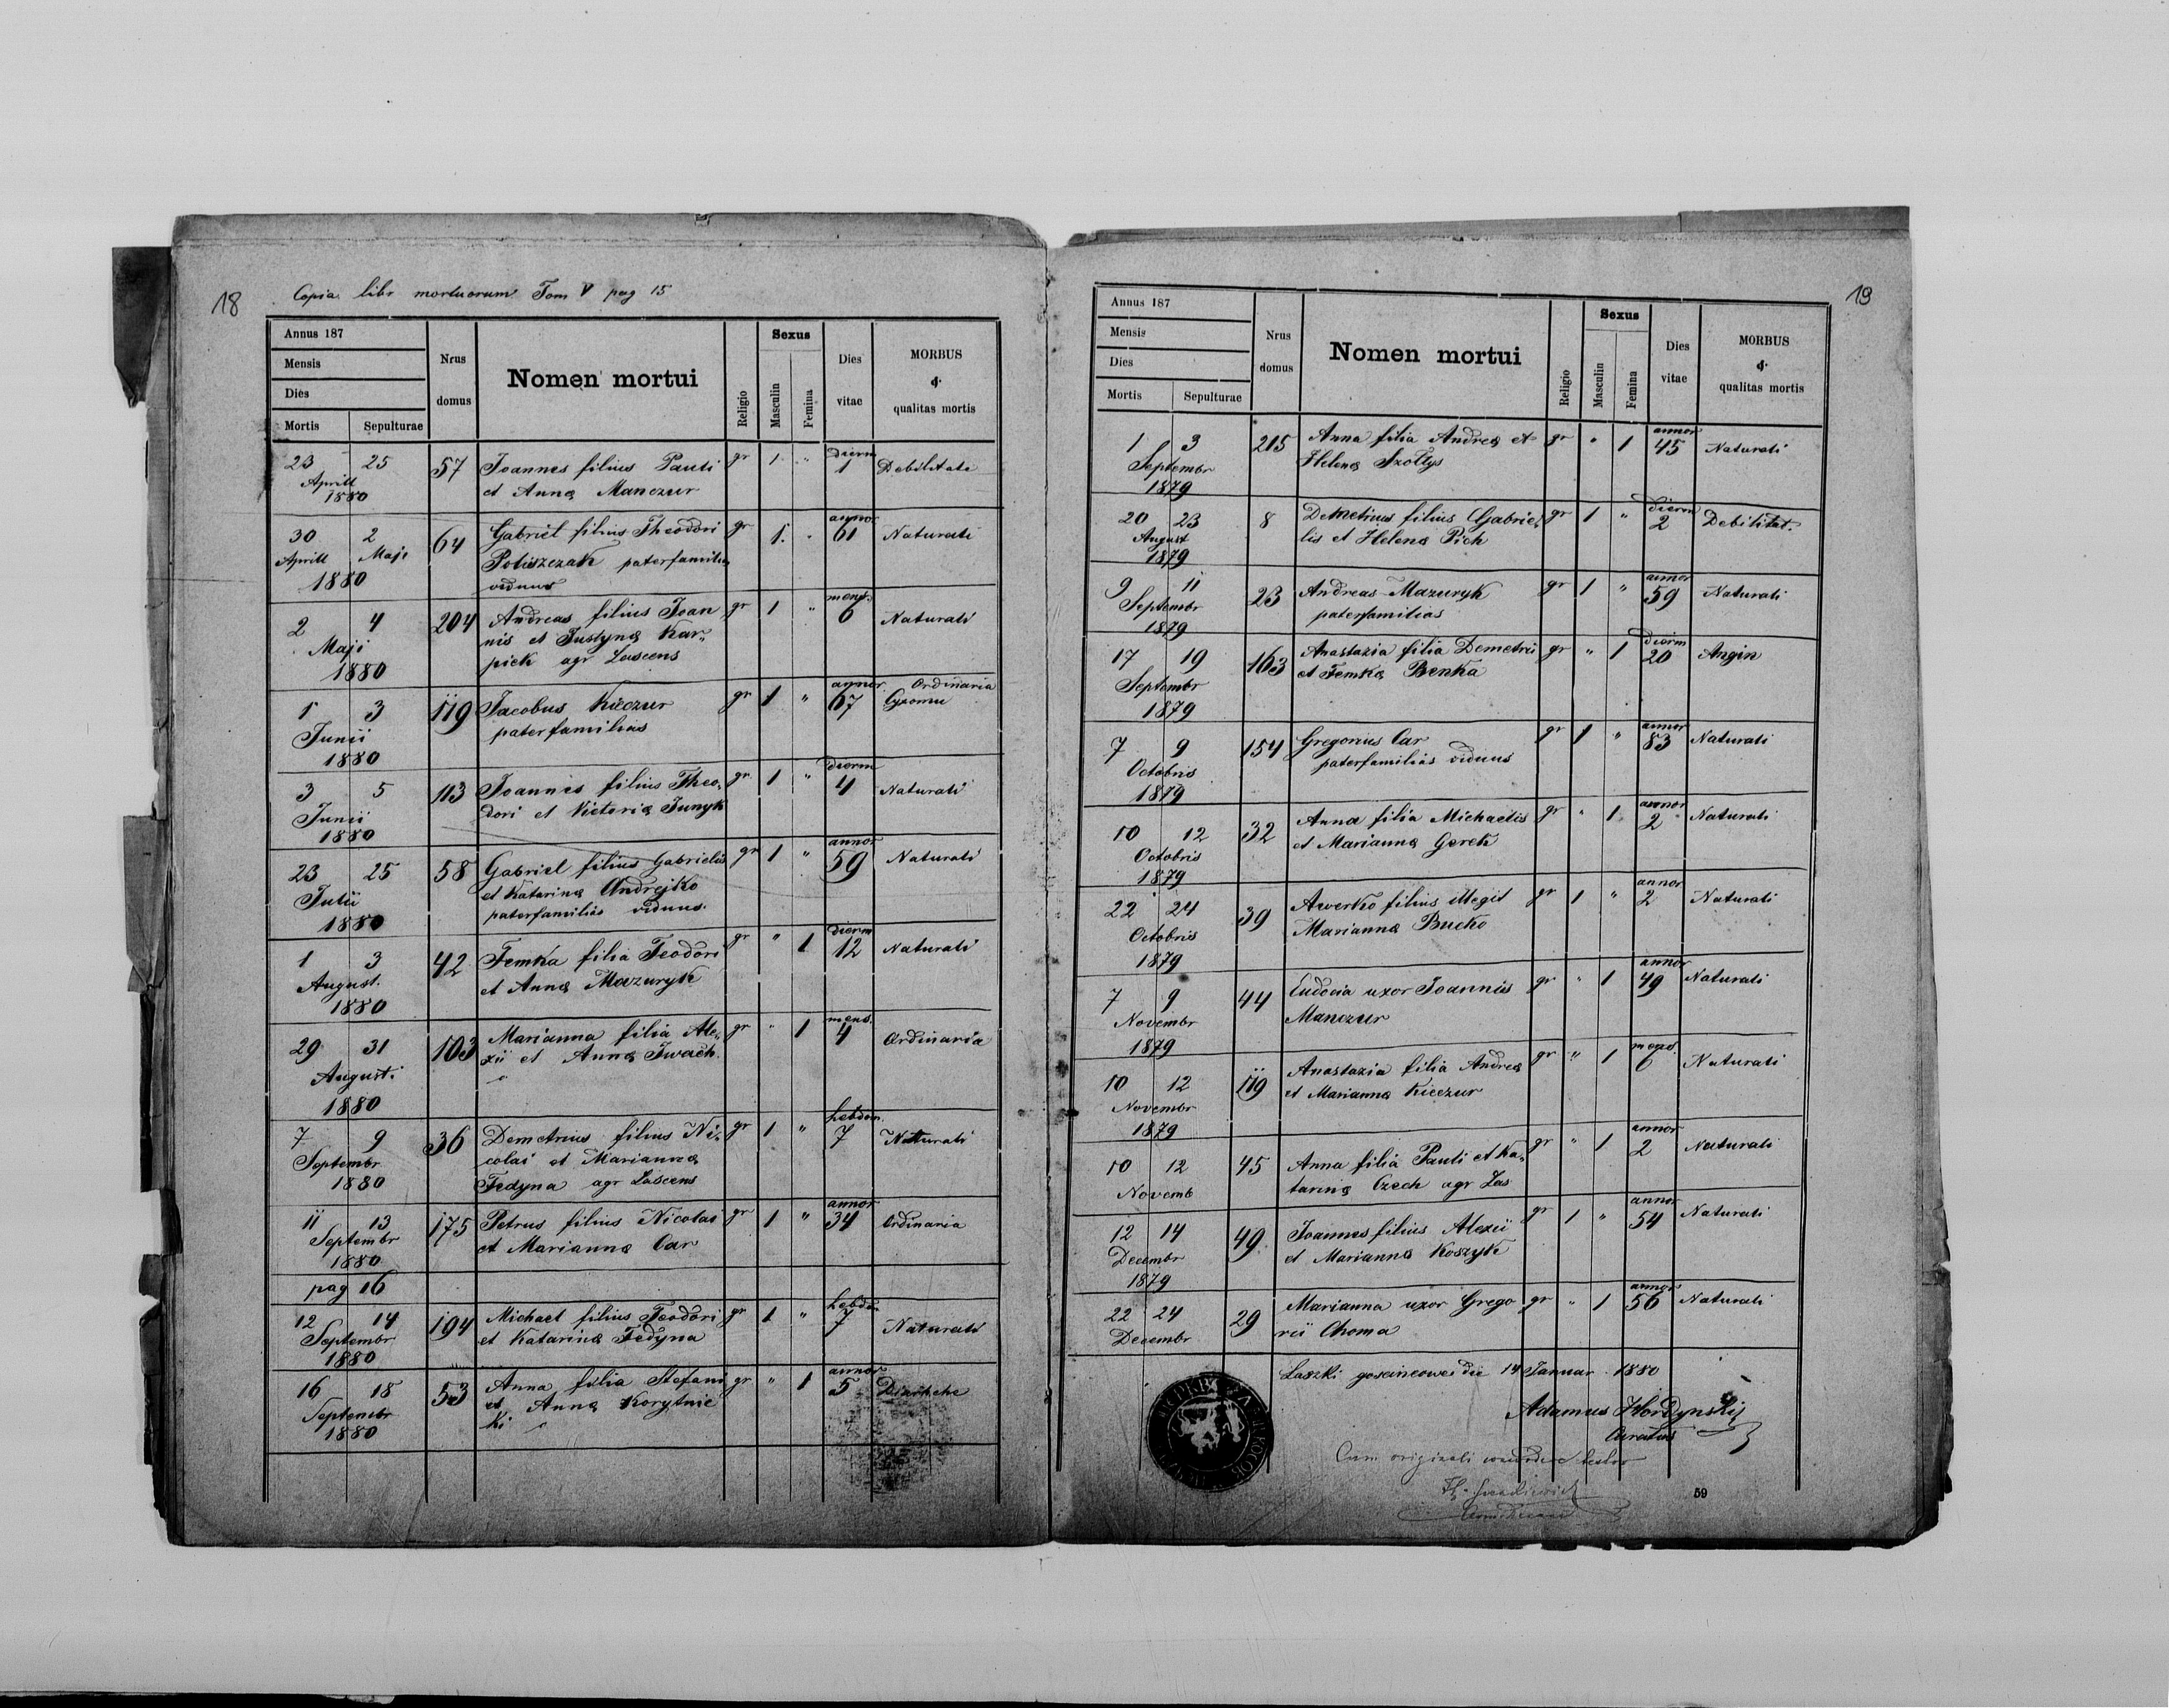 18
Copia libr mortuorum Tom V pag 15
Annus 187
Mensis
Dies
Mortis Sepulturae
Nrus domus
Nomen mortui
Religio
Sexus
Masculin
Femina
Dies vitae
MORBUS & qualitas mortis
23 25 57 Joannes filius Pauli gr 1 " dierm 1 Debilitate
Aprill et Annę Manczur
1880
30 2 64 Gabriel filius Theodori gr 1 " annor 61 Naturali
Aprill Maji Poliszczak paterfamilias
1880 viduus
2 4 204 Andreas filius Joan gr 1 " mens. 6 Naturali
Maji nis et Justynę Kar„
1880 pick agr Lascens
1 3 119 Jacobus Kiczur gr 1 " annor 67 Ordinaria
Junii paterfamilias
1880
3 5 113 Joannes filius Theo„ gr 1 " dierm 4 Naturali
Junii dori et Victorię Junyk
1880
23 25 58 Gabriel filius Gabrielis gr 1 " annor 59 Naturali
Julii et Katarinę Andrejko
1880 paterfamilias viduus.
1 3 42 Femka filia Teodori gr " 1 dierm 12 Naturali
August. et Annę Mazuryk
1880
29 31 103 Marianna filia Ale„ gr " 1 mens. 4 Ordinaria
Augusti xii et Annę Iwach.
1880
7 9 36 Demetrius filius Ni„ gr 1 " hebdom. 7 Naturali
Septembr colai et Mariannę
1880 Fedyna agr Lascens
11 13 175 Petrus filius Nicolai gr 1 " annor 34 Ordinaria
Septembr et Mariannę Car
1880
pag 16
12 14 194 Michael filius Teodori gr 1 " hebdo. 7 Naturali
Septembr et Katarinę Fedyna
1880
16 18 53 Anna filia Stefani gr " 1 annor 5
Septembr et Annę Korytnic
1880 ki
19
Annus 187
Mensis
Dies
Mortis Sepulturae
Nrus domus
Nomen mortui
Religio
Sexus
Masculin
Femina
Dies vitae
MORBUS & qualitas mortis
1 3 215 Anna filia Andreę et gr " 1 annor 45 Naturali
Septembr Helenę Szollys
1879
20 23 8 Demetrius filius Gabrie„ gr 1 " dierm 2 Debilitat.
August lis et Helenę Pich
1879
9 11 23 Andreas Mazuryk gr 1 " annor 59 Naturali
Septembr paterfamilias
1879
17 19 163 Anastazia filia Demetrii gr " 1 dierm 20 Angin
Septembr et Femkę Benka
1879
7 9 154 Gregorius Car gr 1 " annor 83 Naturali
Octobris paterfamilias viduus
1879
10 12 32 Anna filia Michaelis gr " 1 annor 2 Naturali
Octobris et Mariannę Gerek
1879
22 24 39 Awerko filius illegit gr 1 " annor 2 Naturali
Octobris Mariannę Bucko
1879
7 9 44 Eudocia uxor Joannis gr " 1 annor 49 Naturali
Novembr Manczur
1879
10 12 119 Anastazia filia Andreę gr " 1 mens. 6 Naturali
Novembr et Mariannę Kiczur
1879
10 12 45 Anna filia Pauli et Ka„ gr " 1 annor 2 Naturali
Novemb tarinę Czech agr Las
12 14 49 Joannes filius Alexii gr 1 " annor 54 Naturali
Decembr et Mariannę Koszyk
1879
22 24 29 Marianna uxor Grego gr " 1 annor 56 Naturali
Decembr rii Choma
Laszki goscincowe die 14 Januar 1880
Adamus Hordynskij
Curatus
Cum originali
59